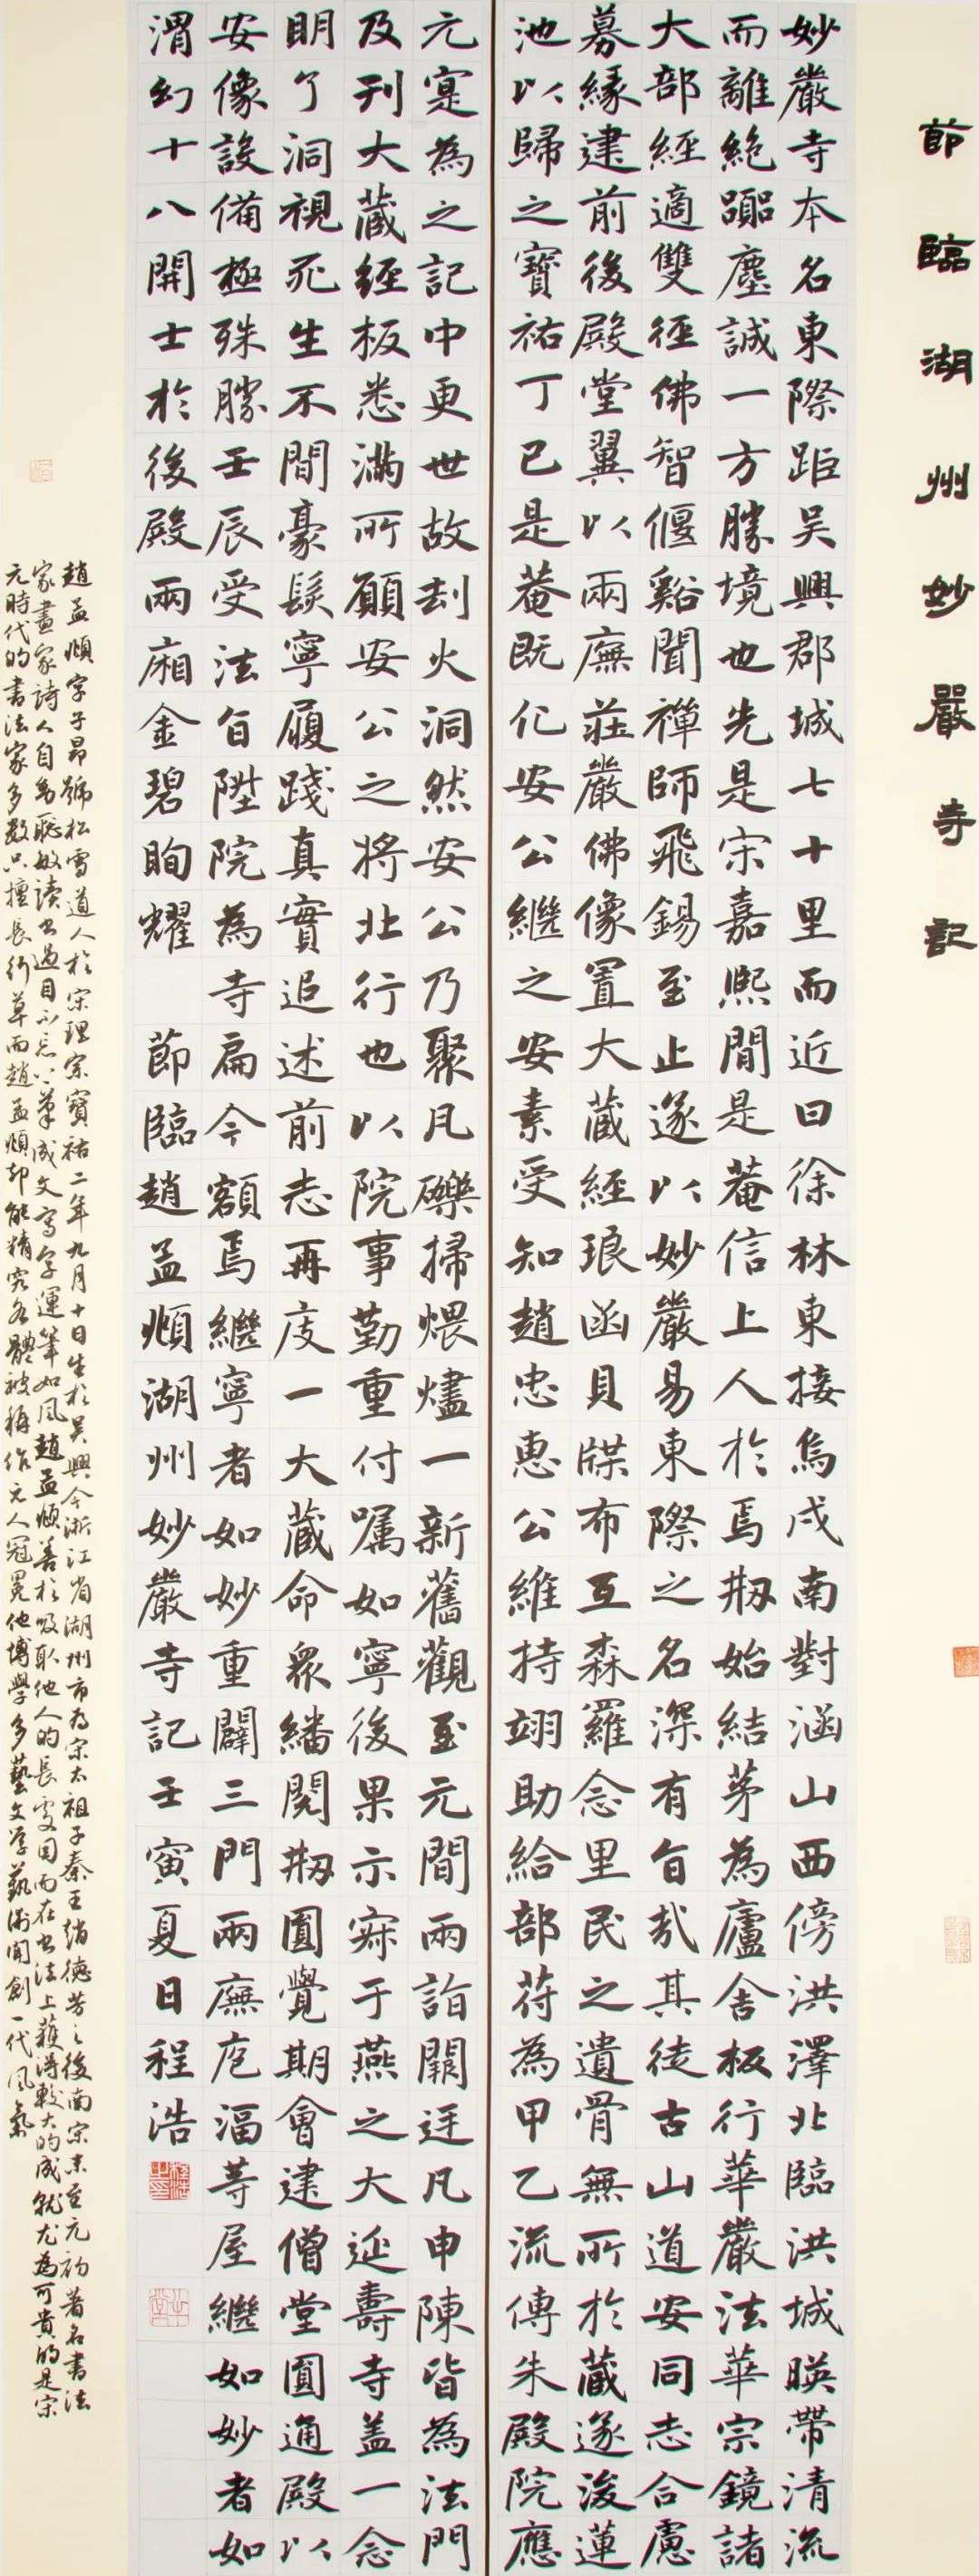 節臨湖州妙嚴寺記
妙嚴寺本名東際距吳興郡城七十里而近曰徐林東接烏戍南對涵山西傍洪澤北臨洪城暎帶清流
而離絕躢塵誠一方勝境也先是宋嘉熙間是菴信上人於焉剏始結茅為廬舍板行華嚴法華宗鏡諸
大部經適雙徑佛智偃谿聞禪師飛錫至止遂以妙嚴易東際之名深有旨哉其徒古山道安同志合慮
募緣建前後殿堂翼以兩廡莊嚴佛像置大藏經琅函貝牒布互森羅念里民之遺骨無所於藏遂浚蓮
池以歸之寶祐丁巳是菴既化安公繼之安素受知趙忠惠公維持翊助給部符為甲乙流傳朱殿院應
元寔為之記中更世故刦火洞然安公乃聚凡礫掃煨燼一新舊觀至元間兩詣闕廷凡申陳皆為法門
及刊大藏經板悉滿所願安公之將北行也以院事勤重付囑如寧後果示寂于燕之大延壽寺盖一念
明了洞視死生不間豪髮寧履踐真實追述前志再度一大藏命衆繙閱剏圓覺期會建僧堂圓通殿以
安像設備極殊勝壬辰受法旨陞院為寺扁今額焉繼寧者如妙重闢三門兩廡庖湢等屋繼如妙者如
渭幻十八開士於後殿兩廂金碧眴耀 節臨趙孟頫湖州妙嚴寺記壬寅夏日程浩
趙孟頫字子昂號松雪道人於宋理宗寶祐二年九月十日生於吳興今浙江省湖州市為宋太祖子秦王趙德芳之後南宋末至元初著名書法
家畫家詩人自幼聰敏讀書過目不忘下筆成文寫字運筆如風趙孟頫善於吸取他人的長處因而在書法上獲得較大的成就尤為可貴的是宋
元時代的書法家多數只擅長行草而趙孟頫却能精究各體被稱作元人冠冕他博學多藝文學藝術開創一代風氣